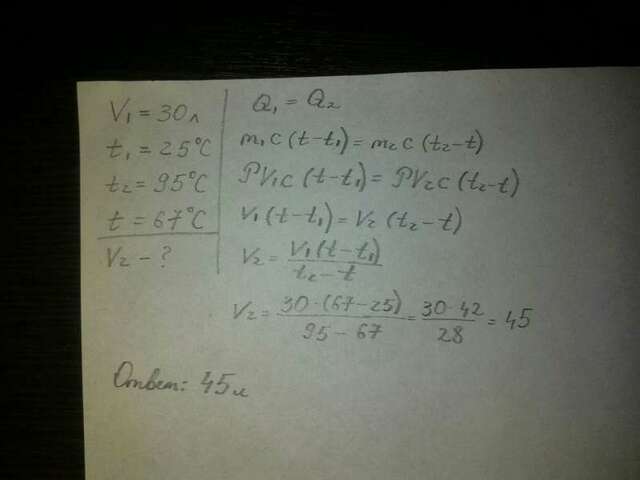 V₁ = 30 л
t₁ = 25°C
t₂ = 95°C
t = 67°C
V₂ - ?
Q₁ = Q₂
m₁c (t-t₁) = m₂c (t₂-t)
PV₁c (t-t₁) = PV₂c (t₂-t)
V₁(t-t₁) = V₂ (t₂-t)
V₂ = V₁(t-t₁) / t₂-t
V₂ = 30·(67-25) / 95-67 = 30·42 / 28 = 45
Ответ: 45 л